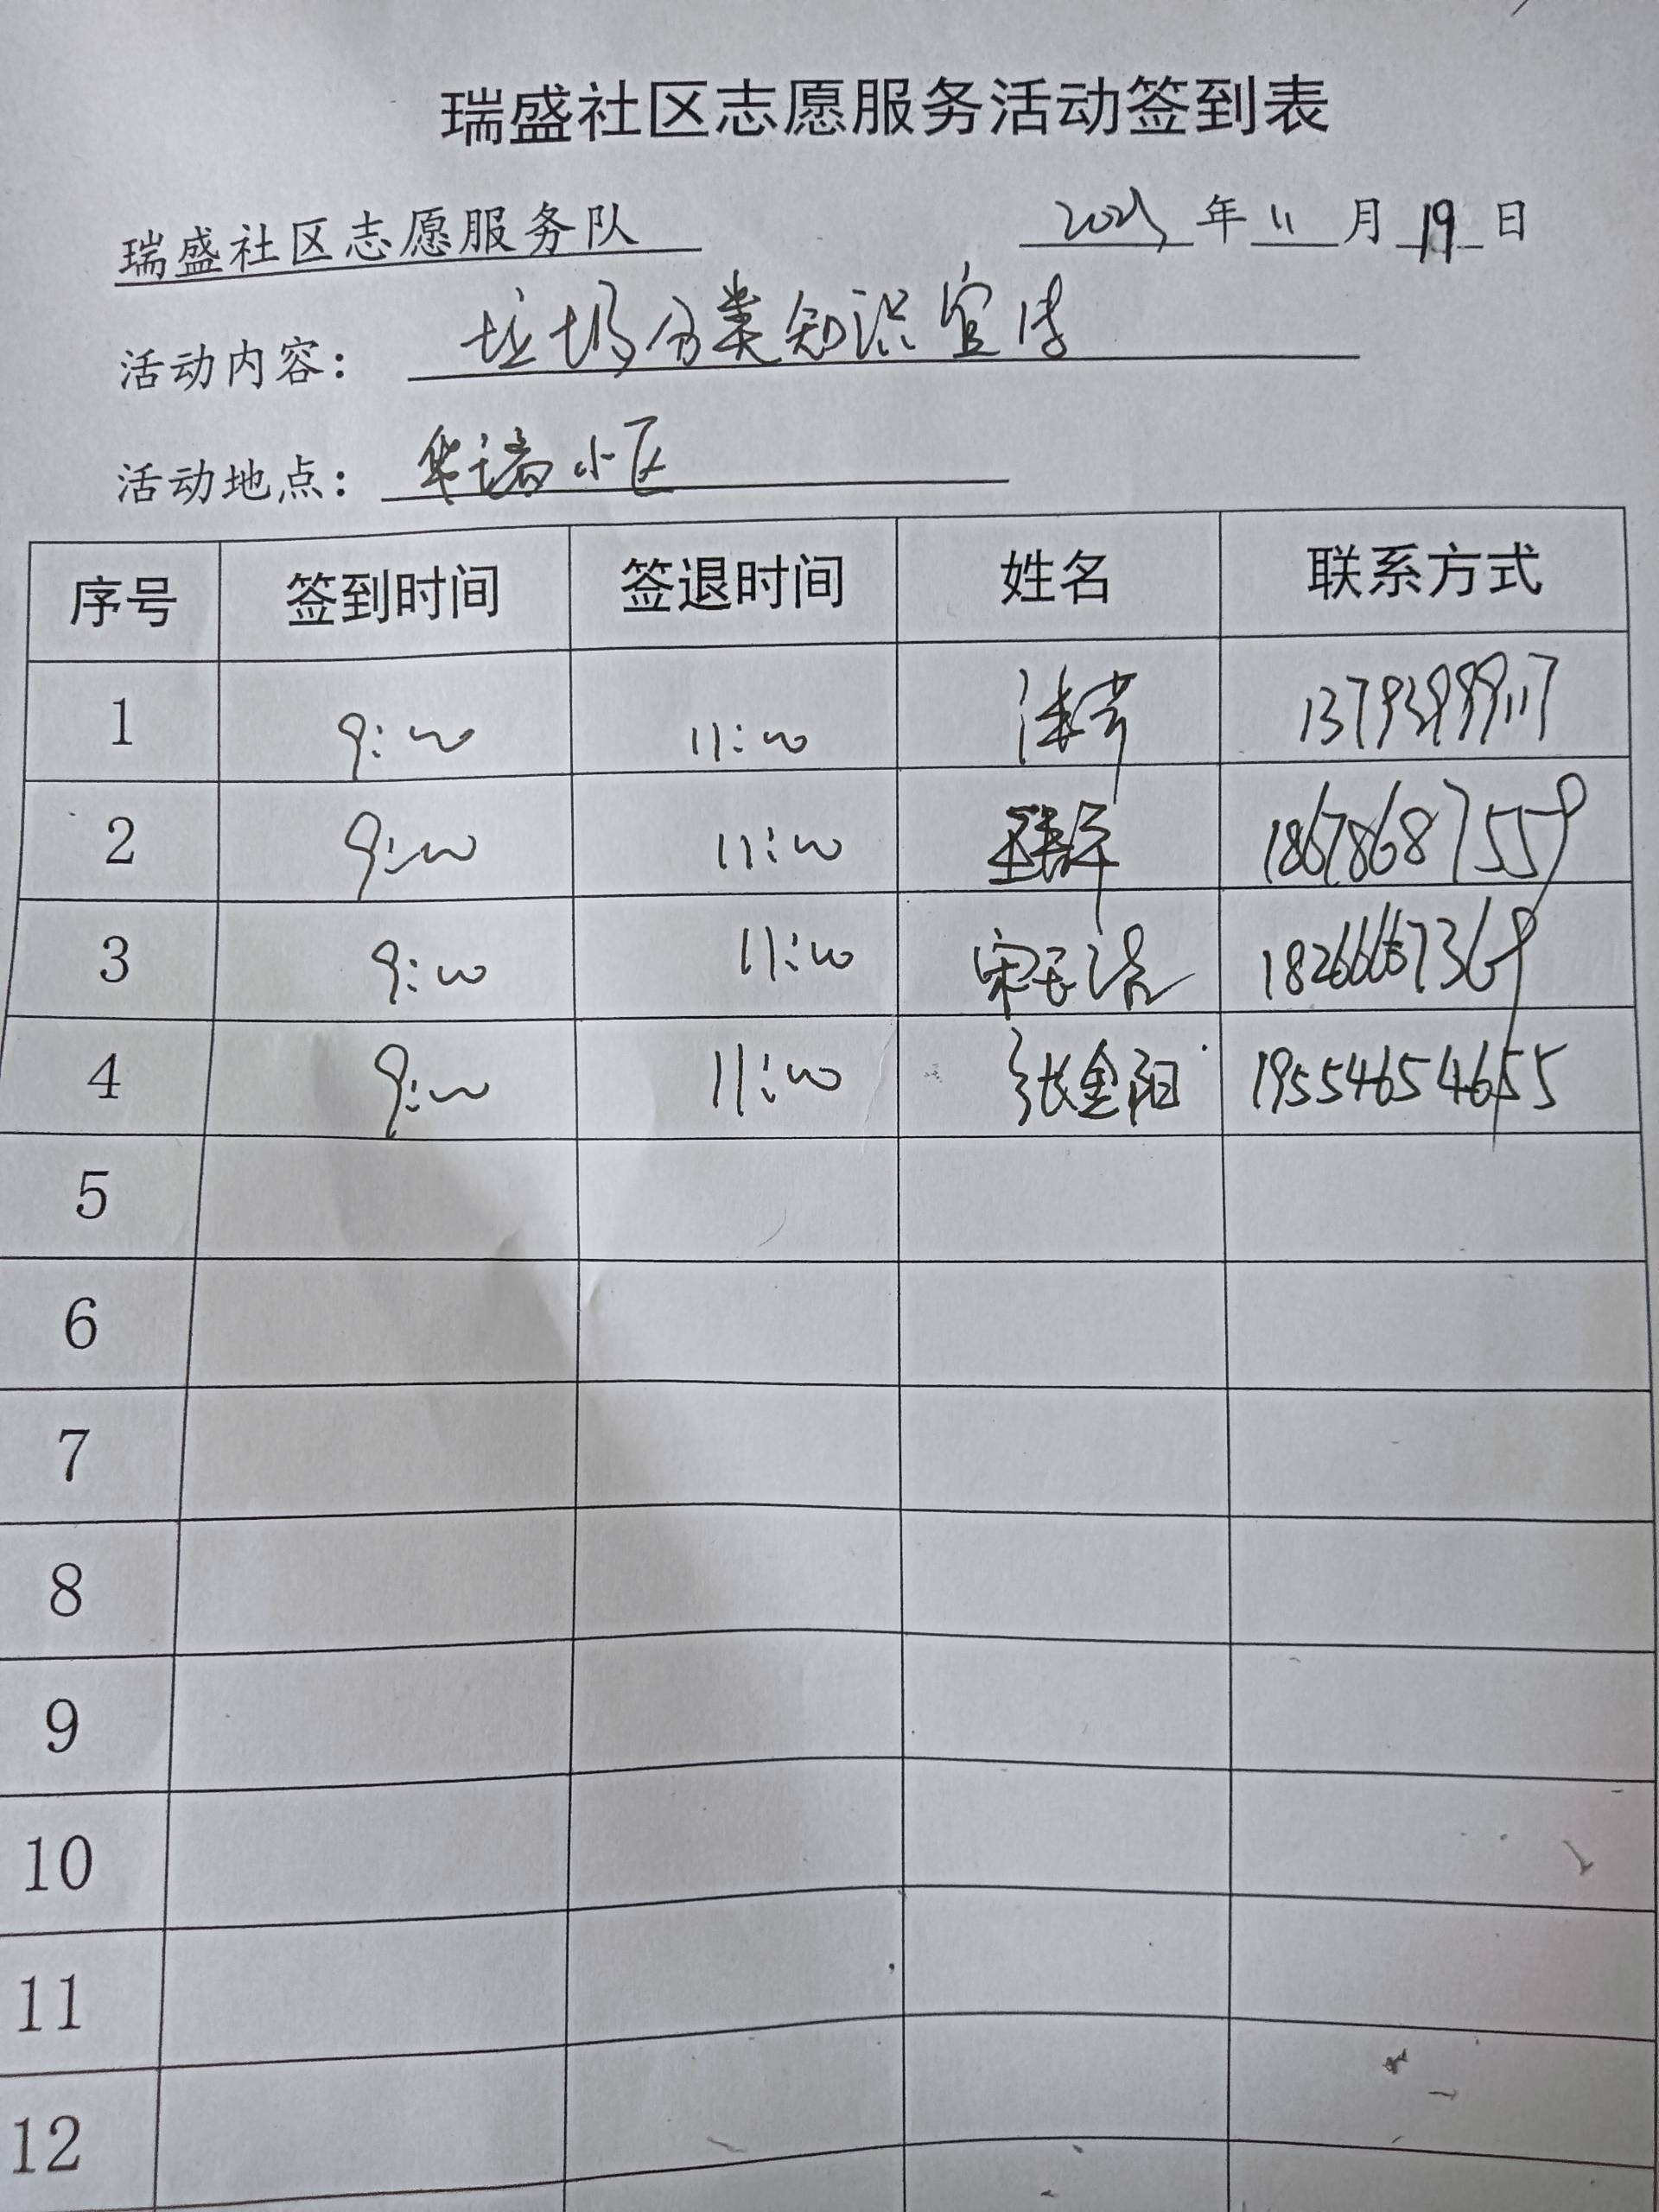 瑞盛社区志愿服务活动签到表
瑞盛社区志愿服务队 年 11 月 19 日
活动内容： 垃圾分类知识宣传
活动地点： 华瑞小区
序号 签到时间 签退时间 姓名 联系方式
1 9:00 11:00
2 9:00 11:00 18678687559
3 9:00 11:00 18266667369
4 9:00 11:00 张金阳 19554654655
5
6
7
8
9
10
11
12